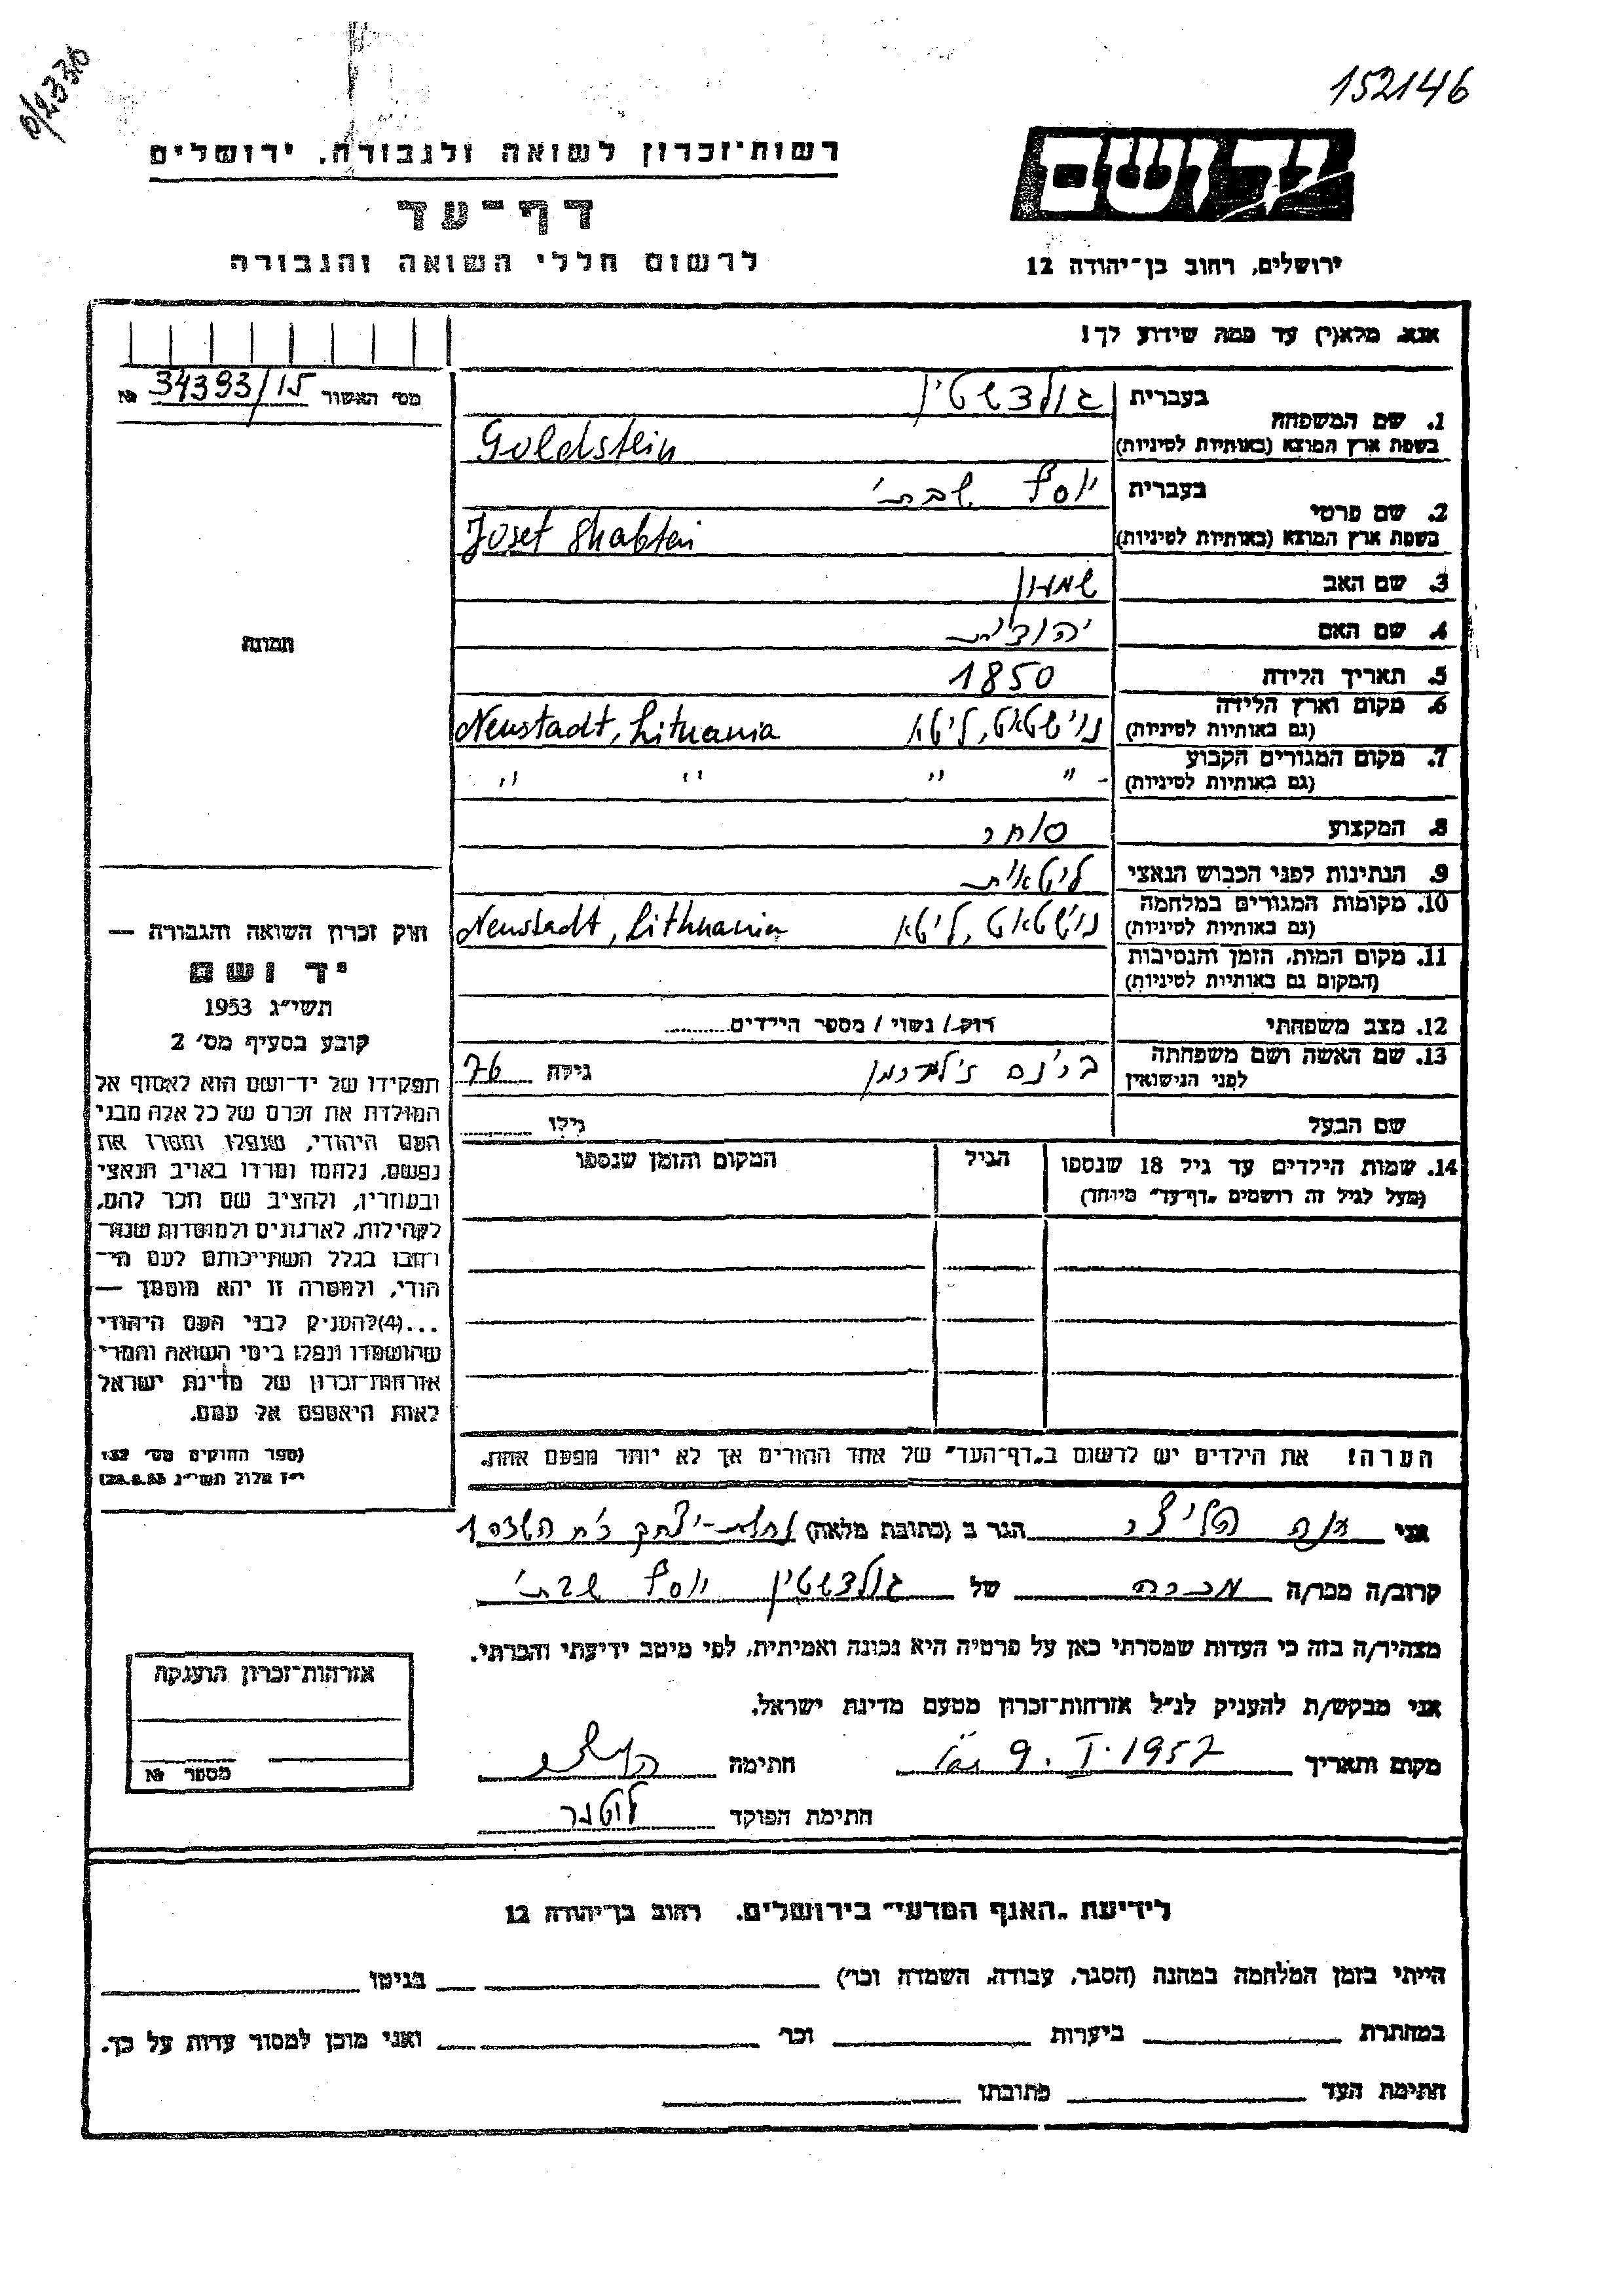 152146
0/2330
יד ושם
ירושלים, רחוב בן־יהודה 12
רשות־זכרון לשואה ולגבורה, ירושלים
דף־עד
לרשום חללי השואה והגבורה
אנא, מלא(י) עד כמה שידוע לך!
מס׳ האשור 34393/15 №
תמונה
1. שם המשפחה
בעברית גולדשטין
בשפת ארץ המוצא (באותיות לטיניות) Goldstein
2. שם פרטי
בעברית יוסף שבתי
בשפת ארץ המוצא (באותיות לטיניות) Josef Shabtai
3. שם האב שמעון
4. שם האם יהודית
5. תאריך הלידה 1850
6. מקום וארץ הלידה נוישטאט, ליטא Neustadt, Lituania
(גם באותיות לטיניות)
7. מקום המגורים הקבוע " " " "
(גם באותיות לטיניות)
8. המקצוע סוחר
9. הנתינות לפני הכבוש הנאצי ליטאית
10. מקומות המגורים במלחמה נוישטאט, ליטא Neustadt, Lithuania
(גם באותיות לטיניות)
11. מקום המות, הזמן והנסיבות
(המקום גם באותיות לטיניות)
12. מצב משפחתי רוק / נשוי / מספר הילדים
13. שם האשה ושם משפחתה
לפני הנישואין גילה 76
שם הבעל גילו
14. שמות הילדים עד גיל 18 שנספו הגיל המקום והזמן שנספו
(מעל לגיל זה רושמים „דף־עד" מיוחד)
הערה! את הילדים יש לרשום ב„דף־העד" של אחד ההורים אך לא יותר מפעם אחת.
חוק זכרון השואה והגבורה —
יד ושם
תשי״ג 1953
קובע בסעיף מס׳ 2
תפקידו של יד־ושם הוא לאסוף אל
המולדת את זכרם של כל אלה מבני
העם היהודי, שנפלו ומסרו את
נפשם, נלחמו ומרדו באויב הנאצי
ובעוזריו, ולהציב שם וזכר להם,
לקהילות, לארגונים ולמוסדות שנח־
רבו בגלל השתייכותם לעם הי־
הודי, ולמטרה זו יהא מוסמך —
...(4)להעניק לבני העם היהודי
שהושמדו ונפלו בימי השואה והמרי
אזרחות־זכרון של מדינת ישראל
לאות היאספם אל עמם.
(ספר החוקים מס׳ 132
י״ז אלול תשי״ג 28.8.53)
אני חנה הגר ב (כתובת מלאה) נחלת-יצחק
קרוב/ה מכר/ה מכרה של גולדשטין יוסף שבתי
מצהיר/ה בזה כי העדות שמסרתי כאן על פרטיה היא נכונה ואמיתית, לפי מיטב ידיעתי והכרתי.
אני מבקש/ת להעניק לנ״ל אזרחות־זכרון מטעם מדינת ישראל.
מקום ותאריך 9. I. 1957 חתימה
חתימת הפוקד
אזרחות־זכרון הוענקה
מספר №
לידיעת „האגף המדעי" בירושלים, רחוב בן־יהודה 12
הייתי בזמן המלחמה במחנה (הסגר, עבודה, השמדה וכו׳) בגיטו
במחתרת ביערות וכו׳ ואני מוכן למסור עדות על כך.
חתימת העד כתובתו